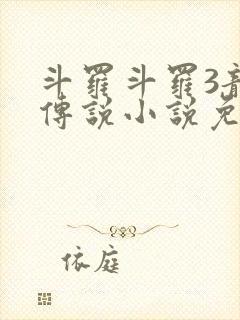 斗羅斗羅3
傳說小說免
依庭